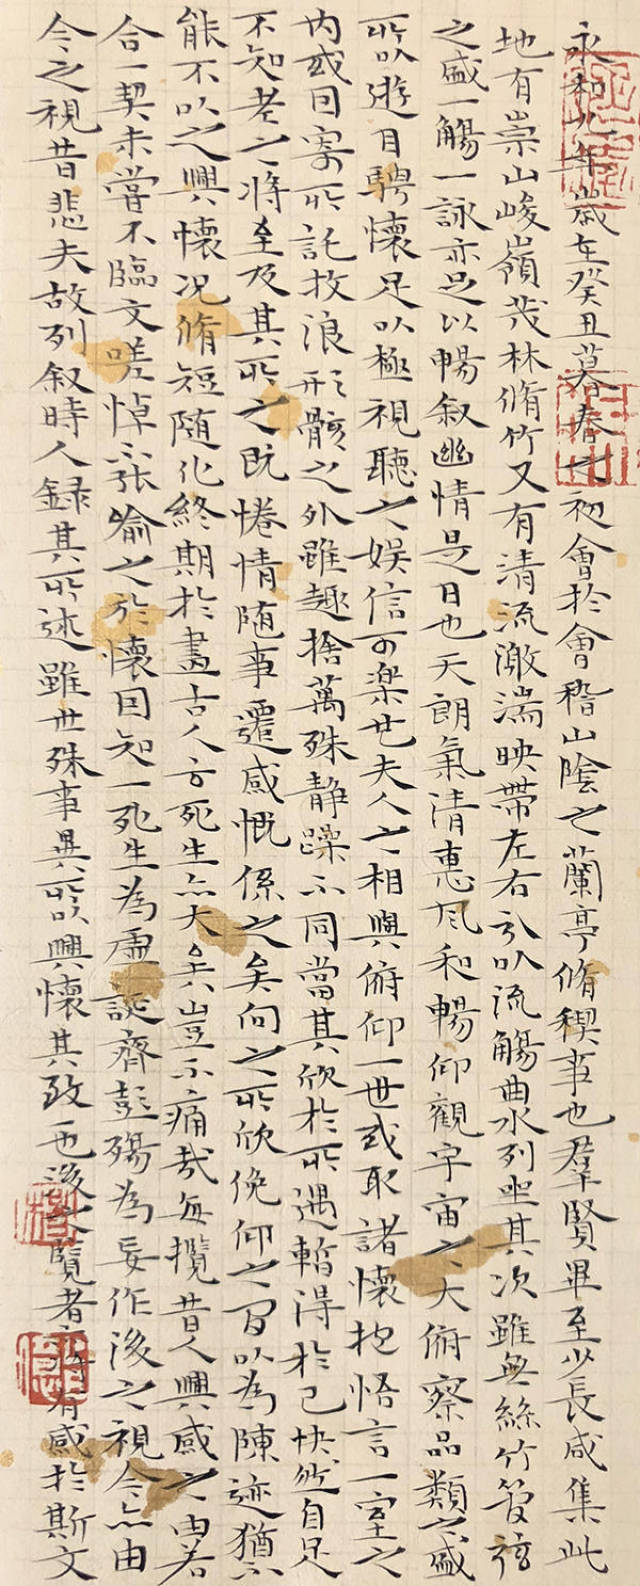 永和九年歲在癸丑暮春之初會於會稽山陰之蘭亭脩稧事也羣賢畢至少長咸集此
地有崇山峻嶺茂林脩竹又有清流激湍映帶左右引以流觴曲水列坐其次雖無絲竹管弦
之盛一觴一詠亦足以暢叙幽情是日也天朗氣清惠風和暢仰觀宇宙之大俯察品類之盛
所以遊目騁懷足以極視聽之娱信可樂也夫人之相與俯仰一世或取諸懷抱悟言一室之
内或因寄所託放浪形骸之外雖趣捨萬殊静躁不同當其欣於所遇暫得於己快然自足
不知老之將至及其所之既惓情随事遷感慨係之矣向之所欣俛仰之間以為陳迹猶不
能不以之興懷况脩短随化終期於盡古人云死生亦大矣豈不痛哉每攬昔人興感之由若
合一契未嘗不臨文嗟悼不能喻之於懷固知一死生為虛誕齊彭殤為妄作後之視今亦由
今之視昔悲夫故列叙時人録其所述雖世殊事異所以興懷其致一也後之覽者亦將有感於斯文